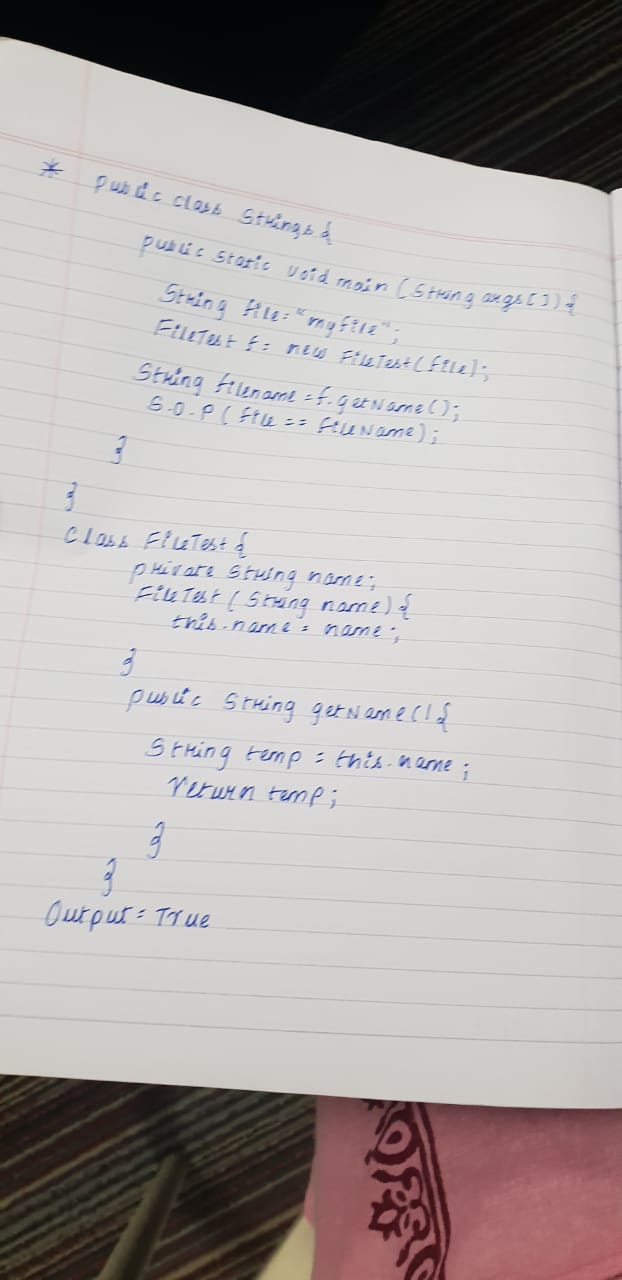 * Public class Strings {
public static void main (String args[]) {
String file = "myfile";
FileTest f = new FileTest(file);
String filename = f.getName();
S.O.P (file == fileName);
}
}
Class FileTest {
private String name;
FileTest (String name) {
this.name = name;
}
public String getName() {
String temp = this.name;
return temp;
}
}
Output = True